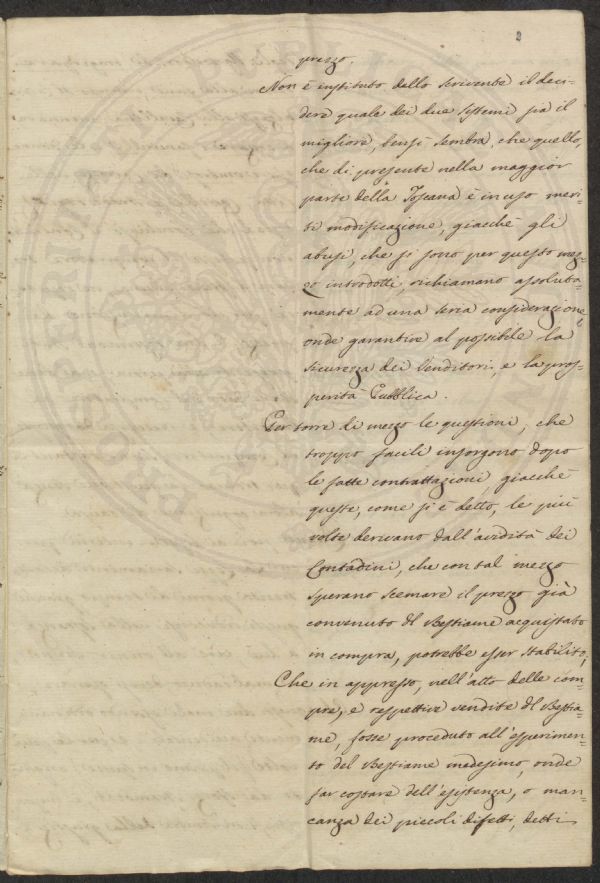 2
prezzo.
Non è instituto dello scrivente il deci-
dere quale dei due sistemi sia il
migliore, bensì sembra, che quello,
che di presente nella maggior
parte della Toscana è in uso meri-
ti modificazione, giacchè gli
abusi, che si sono per questo mez-
zo introdotti, richiamano assoluta-
mente ad una seria considerazione,
onde garantire al possibile la
sicurezza dei Venditori, e la pros-
perità Pubblica.
Per torre di mezzo le questioni, che
troppo facili insorgono dopo
le fatte contrattazioni, giacchè
queste, come si è detto, le più
volte derivano dall'avidità dei
Contadini, che con tal mezzo
sperano scemare il prezzo già
convenuto del Bestiame acquistato
in compra, potrebbe esser stabilito,
Che in appresso, nell'atto delle com-
pre, e respettive vendite del Bestia-
me, fosse proceduto all'esperimen-
to del Bestiame medesimo, onde
far costare dell'esistenza, o man-
canza dei piccoli difetti, detti